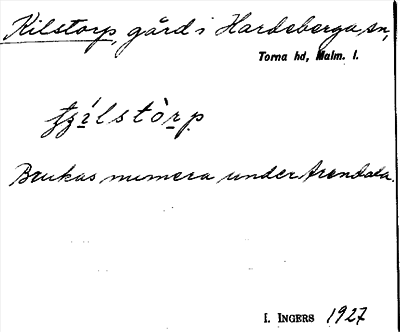 Kilstorp, gård i Hardeberga sn,
Torna hd, Malm. l.
Brukas numera under Arendala.
I. INGERS 1927